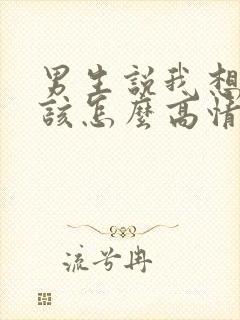 男生説我想
該怎麼高情
流兮冉